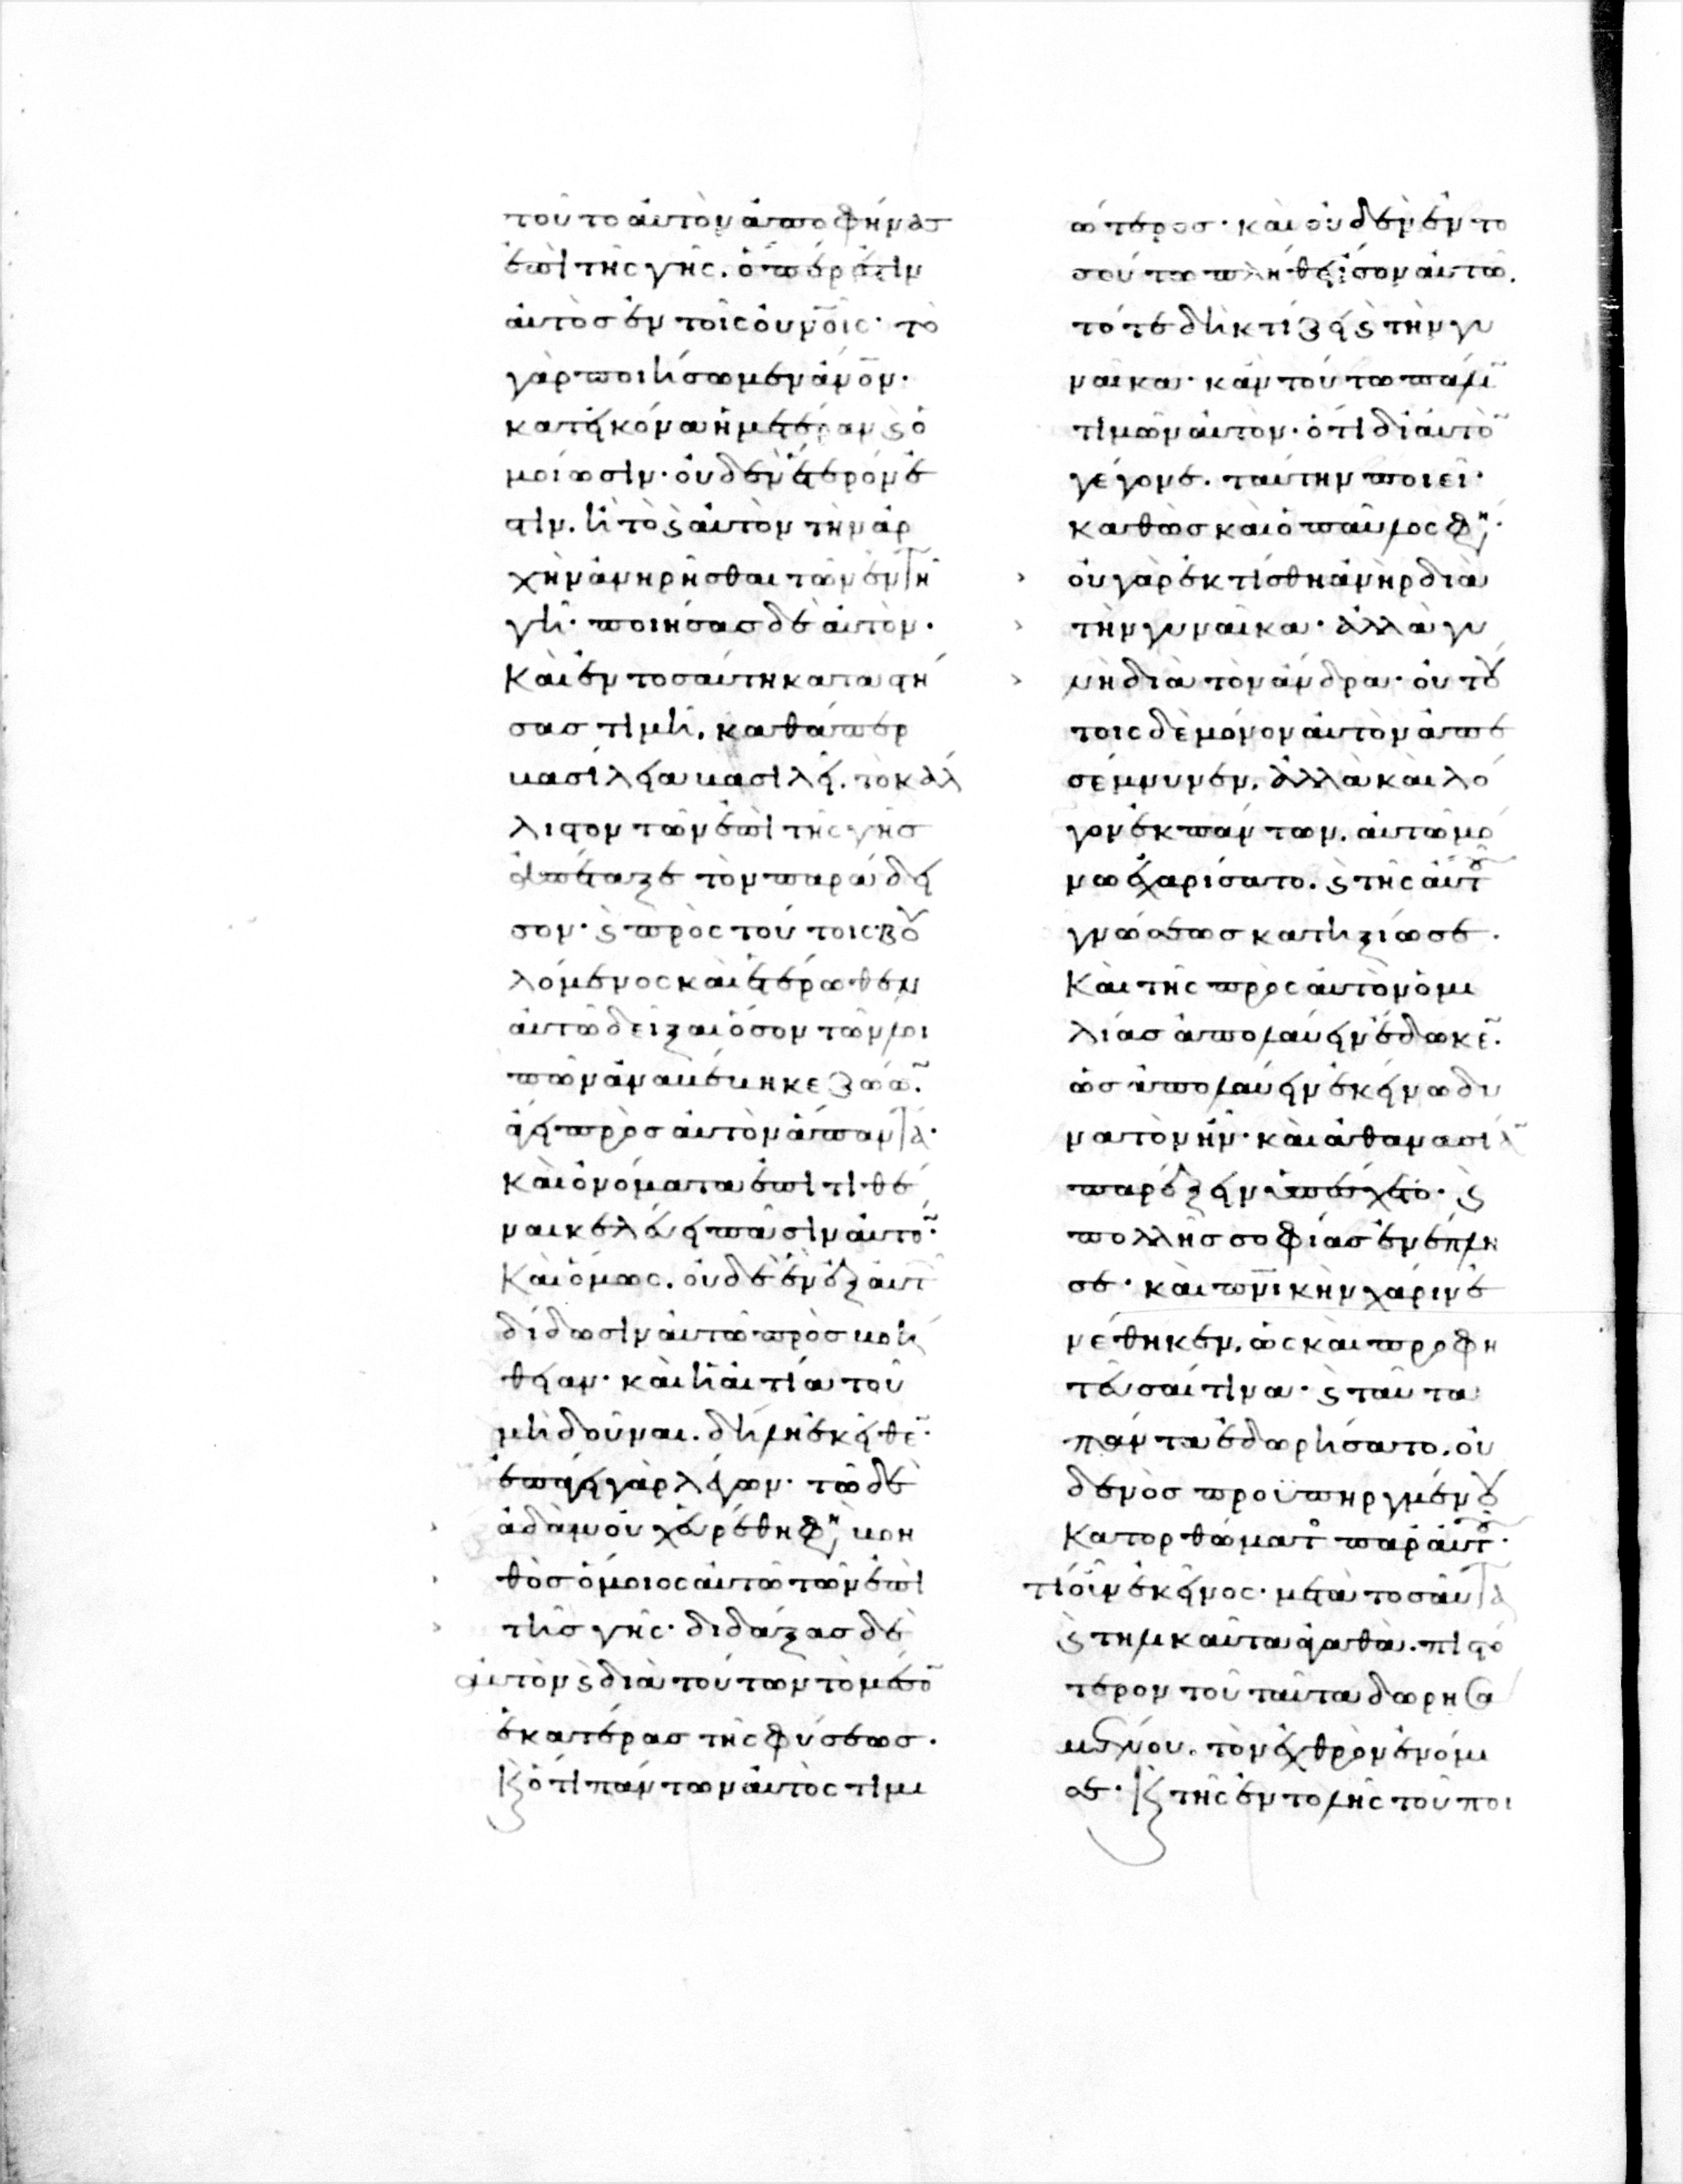 τοῦτο αὐτὸν ἀποφήνας
ἐπὶ τῆς γῆς. ὅπερ ἐστὶν
αὐτὸς ἐν τοῖς οὐνοῖς· τὸ
γὰρ ποιήσωμεν ἀνον·
κατ εἰκόνα ἡμετέραν ϛ ὁ
μοίωσιν· οὐδὲν ἕτερόν ἐ
στιν. ἢ τὸ ϛ αὐτὸν τὴν ἀρ
χὴν ἀνηρῆσθαι τῶν ἐν τῆ
γῆ· ποιήσας δὲ αὐτὸν·
Καὶ ἐν τοσαύτη καταστή
σας τιμῆ. καθάπερ
βασίλεια βασιλεῖ. τὸ κάλ
λιστον τῶν ἐπὶ τῆς γῆς
ἀπέταξε τὸν παράδει
σον· ϛ πρὸς τούτοις βου
λόμενος καὶ ἑτέρωθεν
αὐτῶ δεῖξαι ὅσον τῶν λοι
πῶν ἀναβέβηκε ζώω̄.
ἄγει πρὸς αὐτὸν ἅπαντα·
καὶ ὀνόματα ἐπιτιθέ
ναι κελεύει πᾶσιν αὐτο̄·
Καὶ ὅμως. οὐδὲ ἓν ἐξ αὐτ
δίδωσιν αὐτῶ πρὸς βοή
θειαν· καὶ ἡ αἰτία τοῦ
μὴ δοῦναι. δήλη ἐκεῖθε̄·
ἐπάγει γὰρ λέγων· τῶ δὲ
ἀδὰμ οὐχ εὑρέθη φη βοη
θὸς ὅμοιος αὐτῶ τῶν ἐπὶ
τῆς γῆς· διδάξας δὲ
αὐτὸν ϛ διὰ τούτων τὸ μέσο̄
ἑκατέρας τῆς φύσεως·
Κ ὅτι πάντων αὐτὸς τιμι
ώτερος· καὶ οὐδὲν ἐν το
σούτω πλήθει ἴσον αὐτῶ.
τότε δὴ κτίζει ϛ τὴν γυ
ναῖκα· κἀν τούτω πάλῑ
τιμῶν αὐτὸν· ὅτι δι αὐτὸ̄
γέγονε. ταύτην ποιεῖ·
καθὼς καὶ ὁ παῦλος φη·
οὐ γὰρ ἐκτίσθη ἀνὴρ διὰ
τὴν γυναῖκα· ἀλλὰ γυ
νὴ διὰ τὸν ἄνδρα· οὐ τού
τοις δὲ μόνον αὐτὸν ἀπε
σέμνυνεν. ἀλλὰ καὶ λό
γον ἐκ πάντων. αὐτῶ μό
νω ἐχαρίσατο. ϛ τῆς αὐτοῦ
γνώσεως κατηξίωσε·
Καὶ τῆς πρὸς αὐτὸν ὁμι
λίας ἀπολαύειν ἔδωκε̄.
ὡς ἀπολαύειν ἐκείνω δυ
νατὸν ἦν· καὶ ἀθανασίᾱ
παρέξειν ὑπέσχετο· ϛ
πολλῆς σοφίας ἐνέπλη
σε· καὶ πνικὴν χάριν ἐ
νέθηκεν. ὡς καὶ προφη
τεῦσαί τινα· ϛ ταῦτα
πάντα ἐδωρήσατο. οὐ
δενὸς προϋπηργμένου
Κατορθώματο παρ αὐτοῦ·
τί οὖν ἐκεῖνος· μετὰ τοσαῦτα
ϛ τηλικαῦτα ἀγαθὰ. πιστό
τερον τοῦ ταῦτα δωρησα
μένου. τὸν ἐχθρὸν ἐνόμι
σε· Κ τῆς ἐντολῆς τοῦ ποι